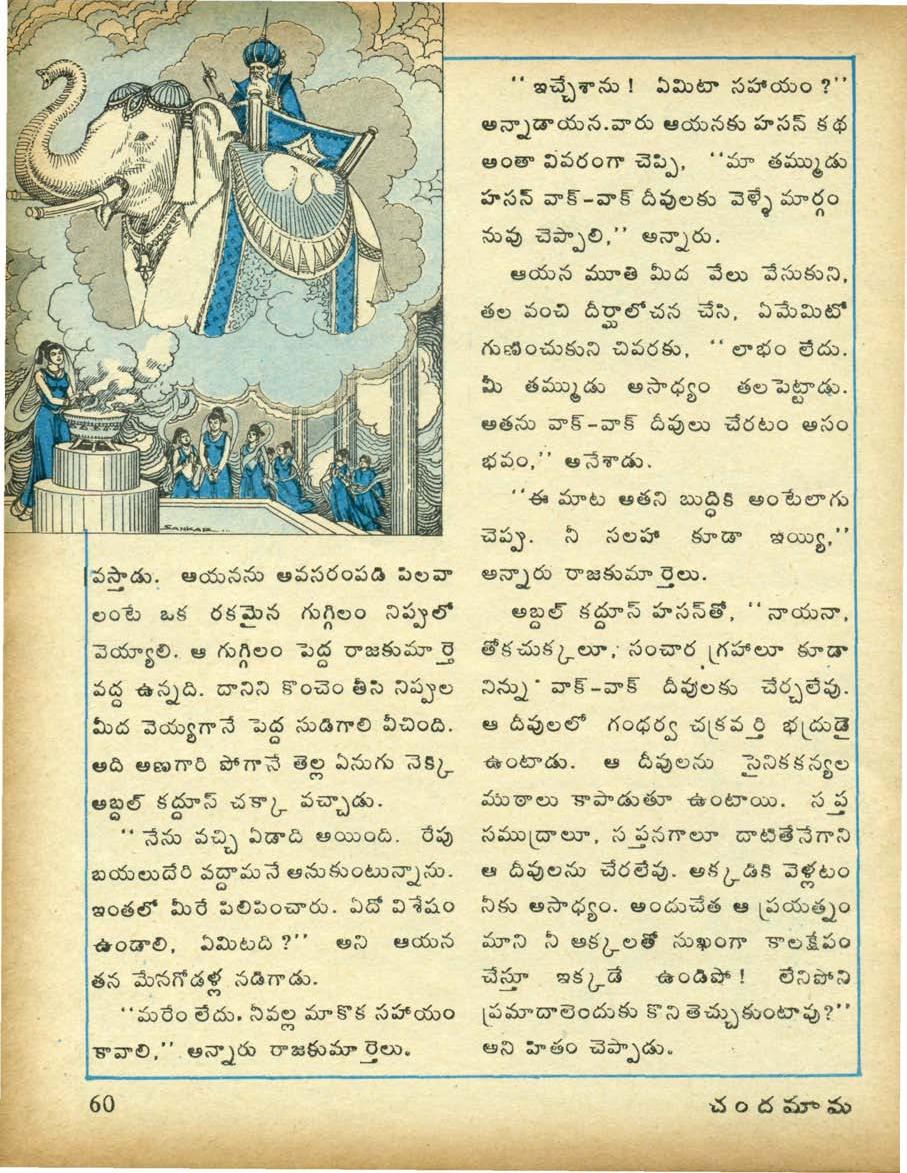 SANKAR...
వస్తాడు. ఆయనను అవసరంపడి పిలవా
లంటే ఒక రకమైన గుగ్గిలం నిప్పులో
వెయ్యాలి. ఆ గుగ్గిలం పెద్ద రాజకుమార్తె
వద్ద ఉన్నది. దానిని కొంచెం తీసి నిప్పుల
మీద వెయ్యగానే పెద్ద సుడిగాలి వీచింది.
అది అణగారి పోగానే తెల్ల ఏనుగు నెక్కి
అబ్దల్ కద్దూస్ చక్కా వచ్చాడు.
“నేను వచ్చి ఏడాది అయింది. రేపు
బయలుదేరి వద్దామనే అనుకుంటున్నాను.
ఇంతలో మీరే పిలిపించారు. ఏదో విశేషం
ఉండాలి, ఏమిటది?” అని ఆయన
తన మేనగోడళ్ల నడిగాడు.
“మరేం లేదు. నీవల్ల మాకొక సహాయం
కావాలి,” అన్నారు రాజకుమార్తెలు.
“ఇచ్చేశాను! ఏమిటా సహాయం?”
అన్నాడాయన. వారు ఆయనకు హసన్ కథ
అంతా వివరంగా చెప్పి, “మా తమ్ముడు
హసన్ వాక్-వాక్ దీవులకు వెళ్ళే మార్గం
నువు చెప్పాలి,” అన్నారు.
ఆయన మూతి మీద వేలు వేసుకుని,
తల వంచి దీర్ఘాలోచన చేసి, ఏమేమిటో
గుణించుకుని చివరకు, “లాభం లేదు.
మీ తమ్ముడు అసాధ్యం తలపెట్టాడు.
అతను వాక్-వాక్ దీవులు చేరటం అసం
భవం,” అనేశాడు.
“ఈ మాట అతని బుద్ధికి అంటేలాగు
చెప్పు. నీ సలహా కూడా ఇయ్యి,”
అన్నారు రాజకుమార్తెలు.
అబ్దల్ కద్దూస్ హసన్‌తో, “నాయనా,
తోకచుక్కలూ, సంచార గ్రహాలూ కూడా
నిన్ను వాక్-వాక్ దీవులకు చేర్చలేవు.
ఆ దీవులలో గంధర్వ చక్రవర్తి భద్రుడై
ఉంటాడు. ఆ దీవులను సైనికకన్యల
ముఠాలు కాపాడుతూ ఉంటాయి. సప్త
సముద్రాలూ, సప్తనగాలూ దాటితేనేగాని
ఆ దీవులను చేరలేవు. అక్కడికి వెళ్లటం
నీకు అసాధ్యం. అందుచేత ఆ ప్రయత్నం
మాని నీ అక్కలతో సుఖంగా కాలక్షేపం
చేస్తూ ఇక్కడే ఉండిపో! లేనిపోని
ప్రమాదాలెందుకు కొనితెచ్చుకుంటావు?”
అని హితం చెప్పాడు.
60
చందమామ